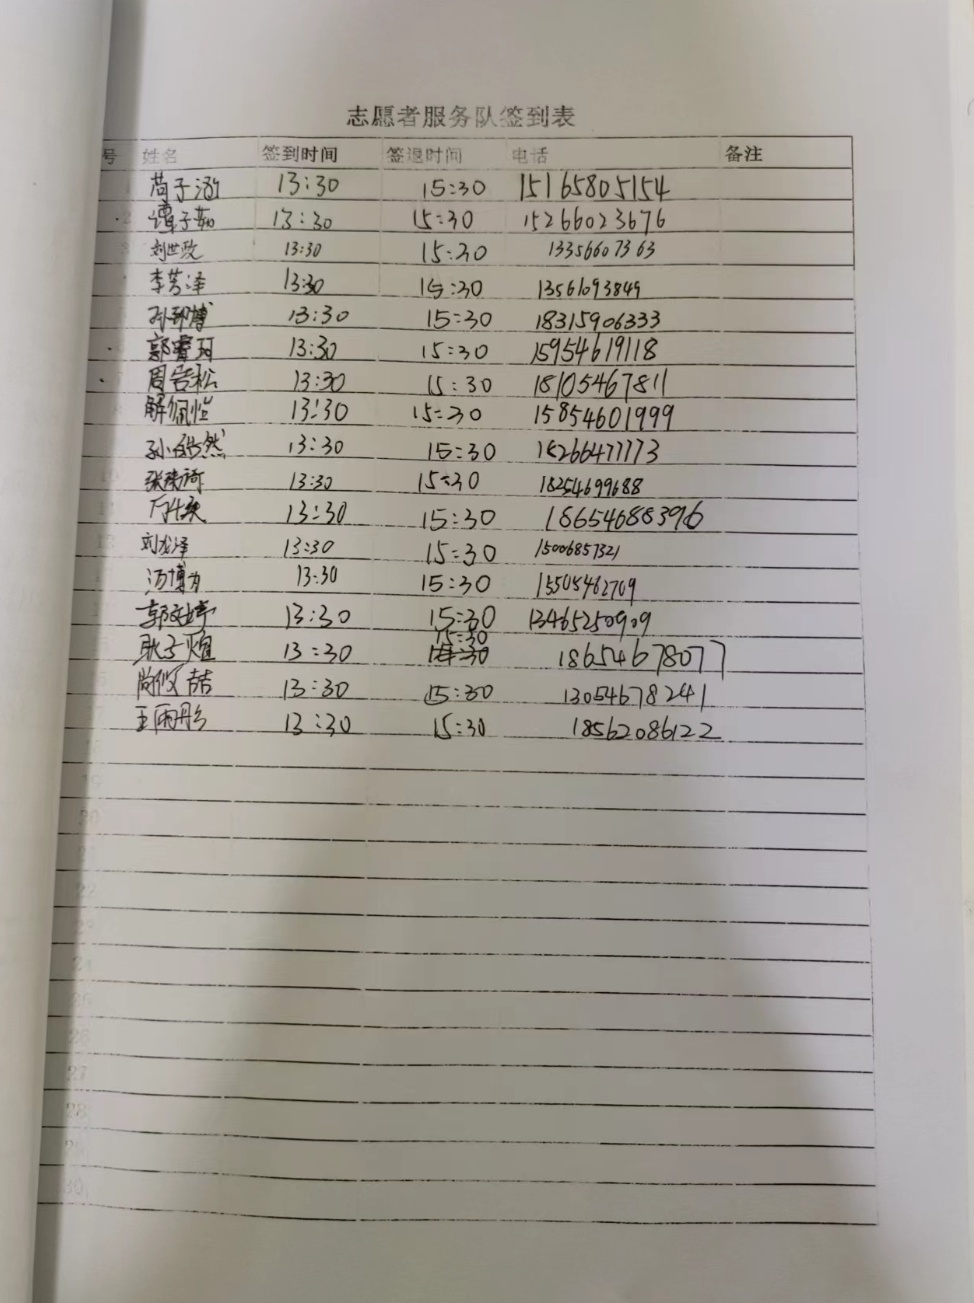 志愿者服务队签到表
号 姓名 签到时间 签退时间 电话 备注
13:30 15:30 15165805154
谭子茹 13:30 15:30 15266023676
3 刘世政 13:30 15:30 13356607363
李芳泽 13:30 15:30 13561093849
13:30 15:30 18315906333
郭睿珂 13:30 15:30 15954619118
周岩松 13:30 15:30 18105467811
13:30 15:30 15854601999
孙皓然 13:30 15:30 15266477773
13:30 15:30 18254699688
13:30 15:30 18654688396
刘龙泽 13:30 15:30 15006857321
汤博为 13:30 15:30 13505462709
郭文婷 13:30 15:30 13465250909
15:30
耿子煊 13:30 18654678077
尚俊喆 13:30 15:30 13054678241
王雨彤 13:30 15:30 18562086122
19
20
22
23
24
26
27
28
29
30